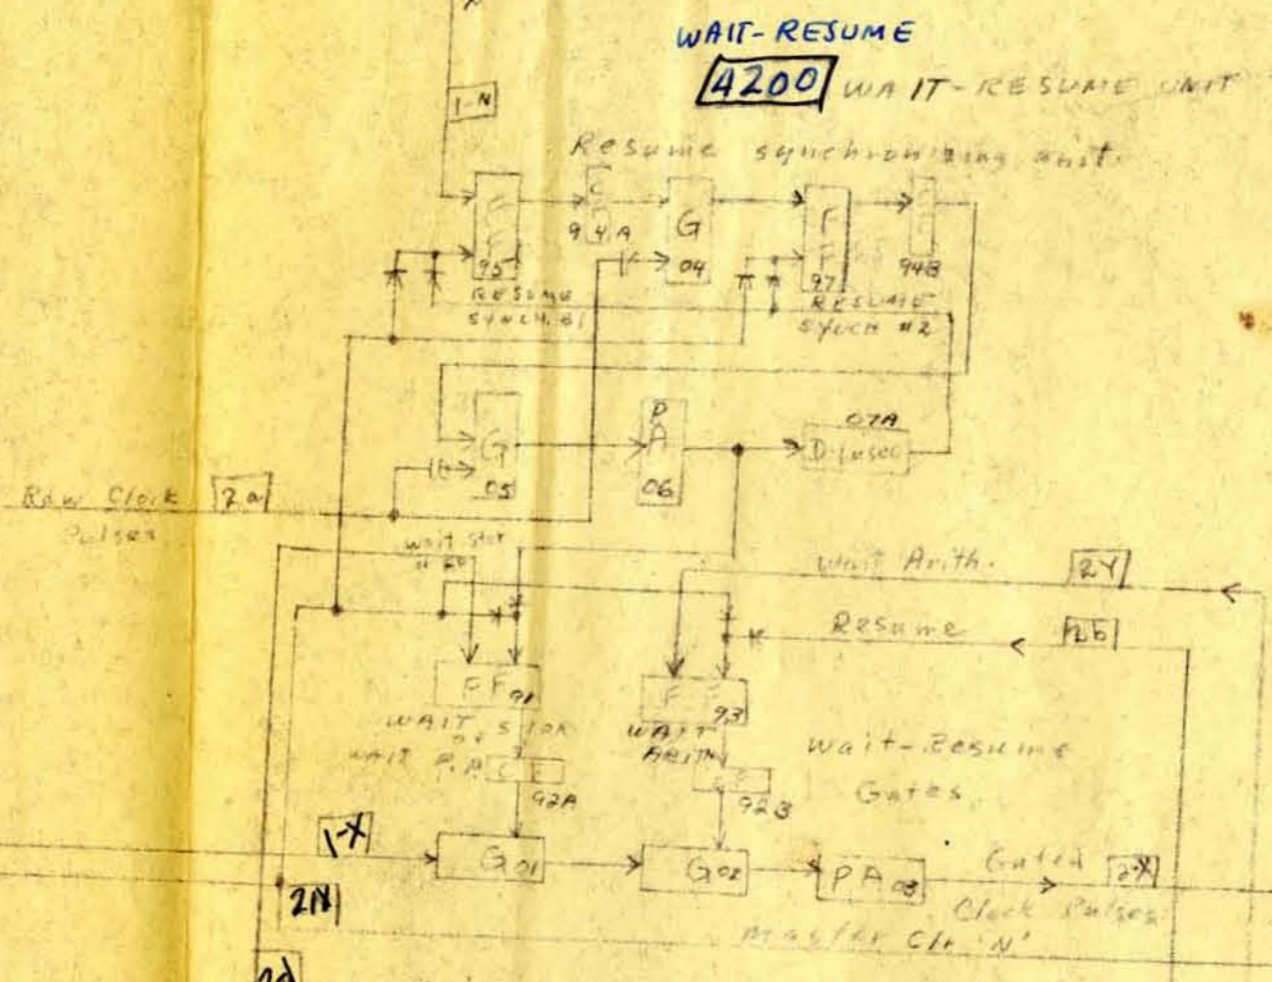 WAIT-RESUME
4200 WAIT-RESUME UNIT
1-N
Resume synchronizing unit.
FF
95
RESUME
SYNCH. #1
C
94A
G
04
FF
97
RESUME
SYNCH #2
94B
G
05
P
A
06
07A
D-1μsec
Raw Clock
Pulses
2a
Wait Stor
Wait Arith.
2Y
Resume
2b
FF91
WAIT STOR
or
WAIT P.P.
FF
93
WAIT
ARITH
C F
92A
92B
Wait-Resume
Gates
1-X
G01
G02
PA03
Gated
Clock Pulses
2-X
21N
Master Clr 'N'
2d